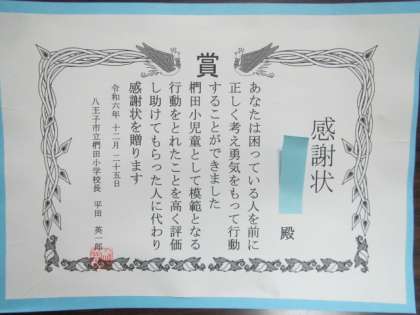 賞
感謝状
殿
あなたは困っている人を前に
正しく考え勇気をもって行動
することができました
椚田小児童として模範となる
行動をとれたことを高く評価
し助けてもらった人に代わり
感謝状を贈ります
令和六年 十二月 二十五日
八王子市立椚田小学校長 平田 英一郎